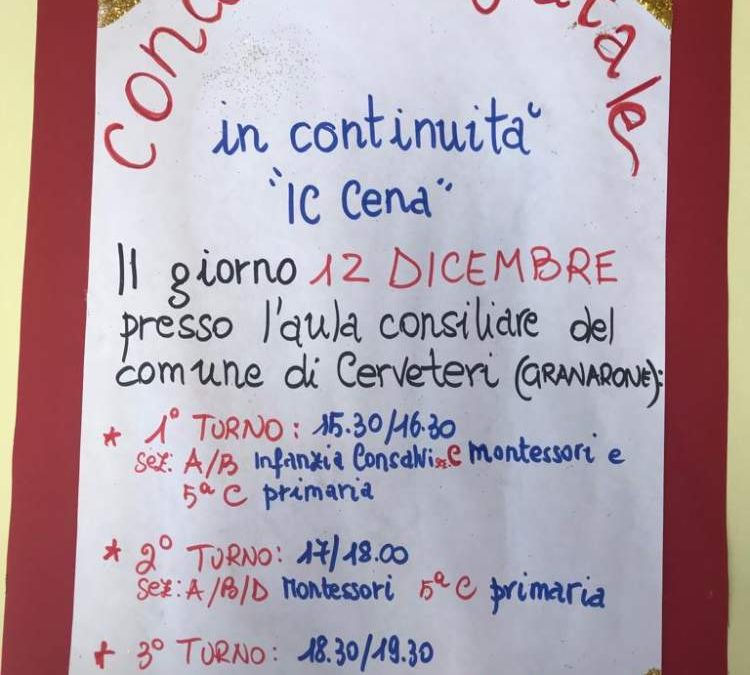 in continuità
"IC Cena"
Il giorno 12 DICEMBRE
presso l'aula consiliare del
comune di Cerveteri (GRANARONE):
* 1° TURNO: 15.30/16.30
sez: A/B Infanzia Consalvi e C Montessori e
5ª C primaria
* 2° TURNO: 17/18.00
sez: A/B/D Montessori 5ª C primaria
* 3° TURNO: 18.30/19.30